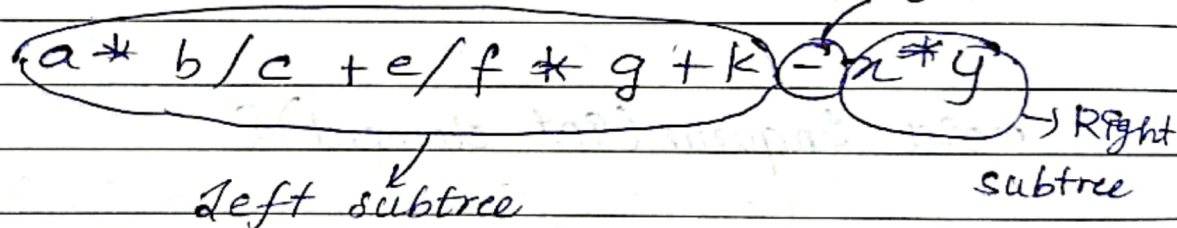 a * b / c + e / f * g + k - x * y
Right
subtree
Left subtree